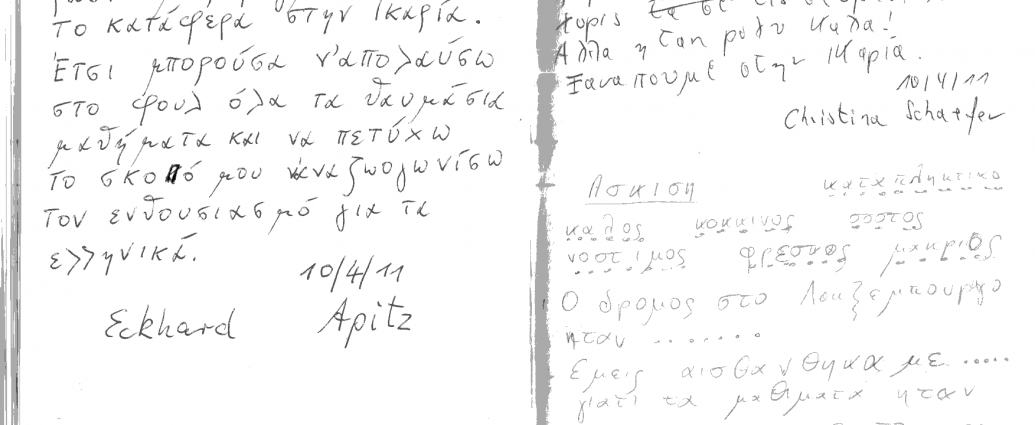 το κατάφερα στην Ικαρία.
Έτσι μπορούσα ν'απολαύσω
στο φουλ όλα τα θαυμάσια
μαθήματα και να πετύχω
το σκοπό μου να
τον ενθουσιασμό για τα
ελληνικά.
10/4/11
Eckhard Apitz
χορις
Αλλα ηταη πολυ καλα!
Ξαναπουμε στην Ικαρία.
10/4/11
Christina Schaefer
Ασκιση καταπληκτικο
καλος κοκκινος
νοστιμος μακριος
Ο δρομος στο Λουξεμπουργο
ηταν .......
Εμεις αισθανθηκαμε .....
γιατι τα μαθιματα ηταν